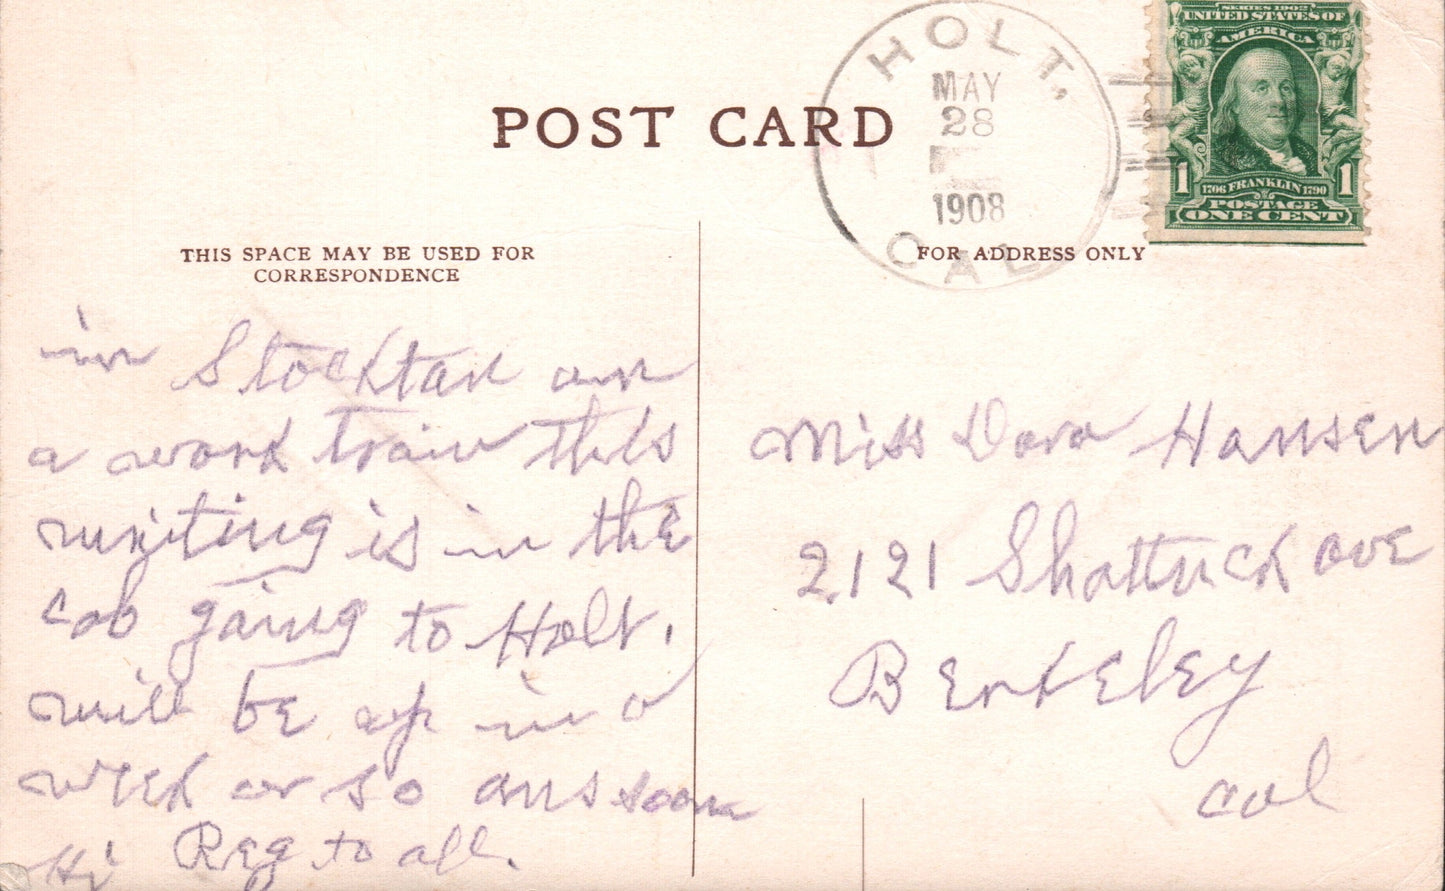 POST CARD
HOLT,
MAY
28
1908
CAL
SERIES 1902
UNITED STATES OF
AMERICA
1 1706 FRANKLIN 1790 1
POSTAGE
ONE CENT
THIS SPACE MAY BE USED FOR
CORRESPONDENCE
FOR ADDRESS ONLY
in Stocktan on
a work train this
writing is in the
cab going to Holt.
will be up in a
week or so ans soon
Reg to all.
Miss Dora Hansen
2121 Shattuck ave
Berkeley
Cal